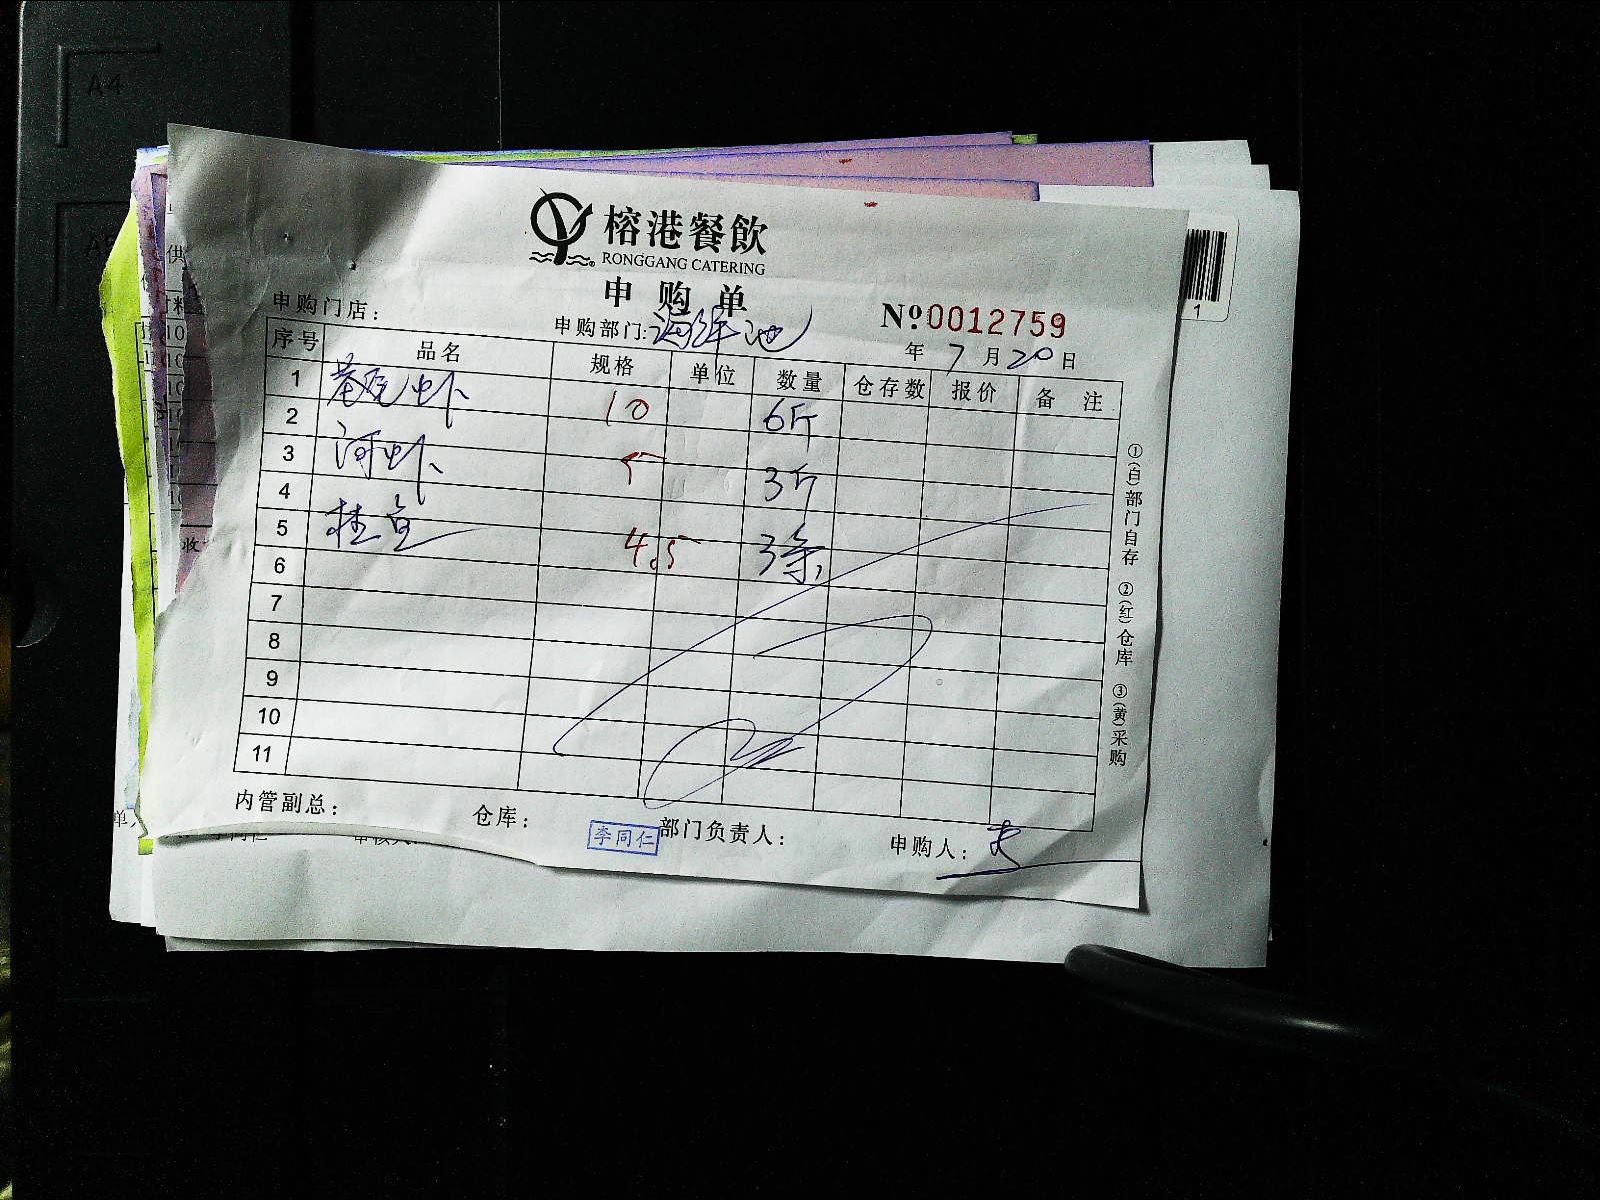 A4
A5
榕港餐飲
RONGGANG CATERING
申购单
申购门店：
申购部门：海鲜池
№0012759
年 7 月 20 日
序号 品名 规格 单位 数量 仓存数 报价 备 注
1 虾 10 6斤
2
3 河虾 5 3斤
4
5 桂鱼 4.5 3条
6
7
8
9
10
11
①(白)部门自存 ②(红)仓库 ③(黄)采购
内管副总： 仓库： 李同仁 部门负责人： 申购人：
1
供
收